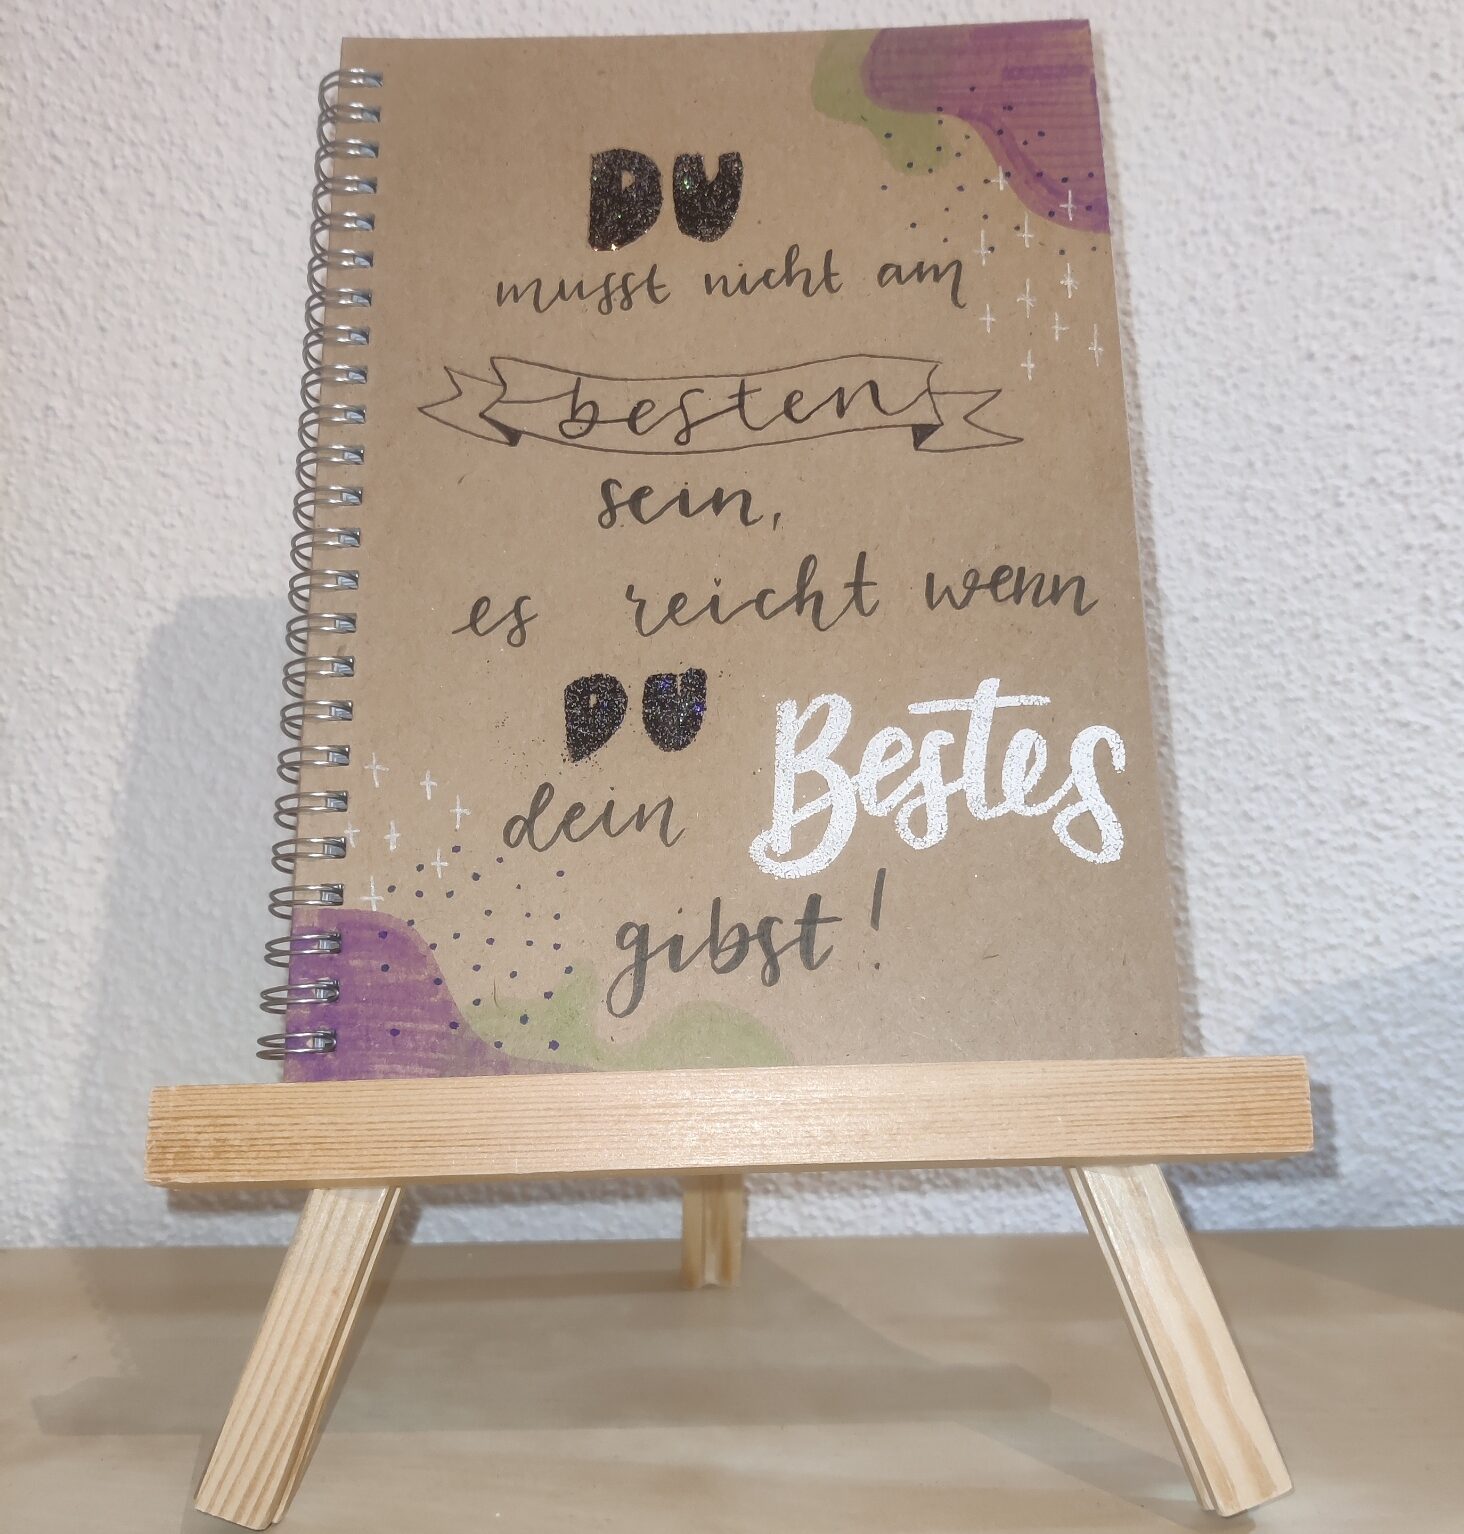 DU
musst nicht am
besten
sein,
es reicht wenn
DU
dein Bestes
gibst!